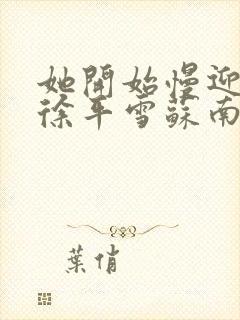 她開始慢迎
徐平雪蘇南
葉俏